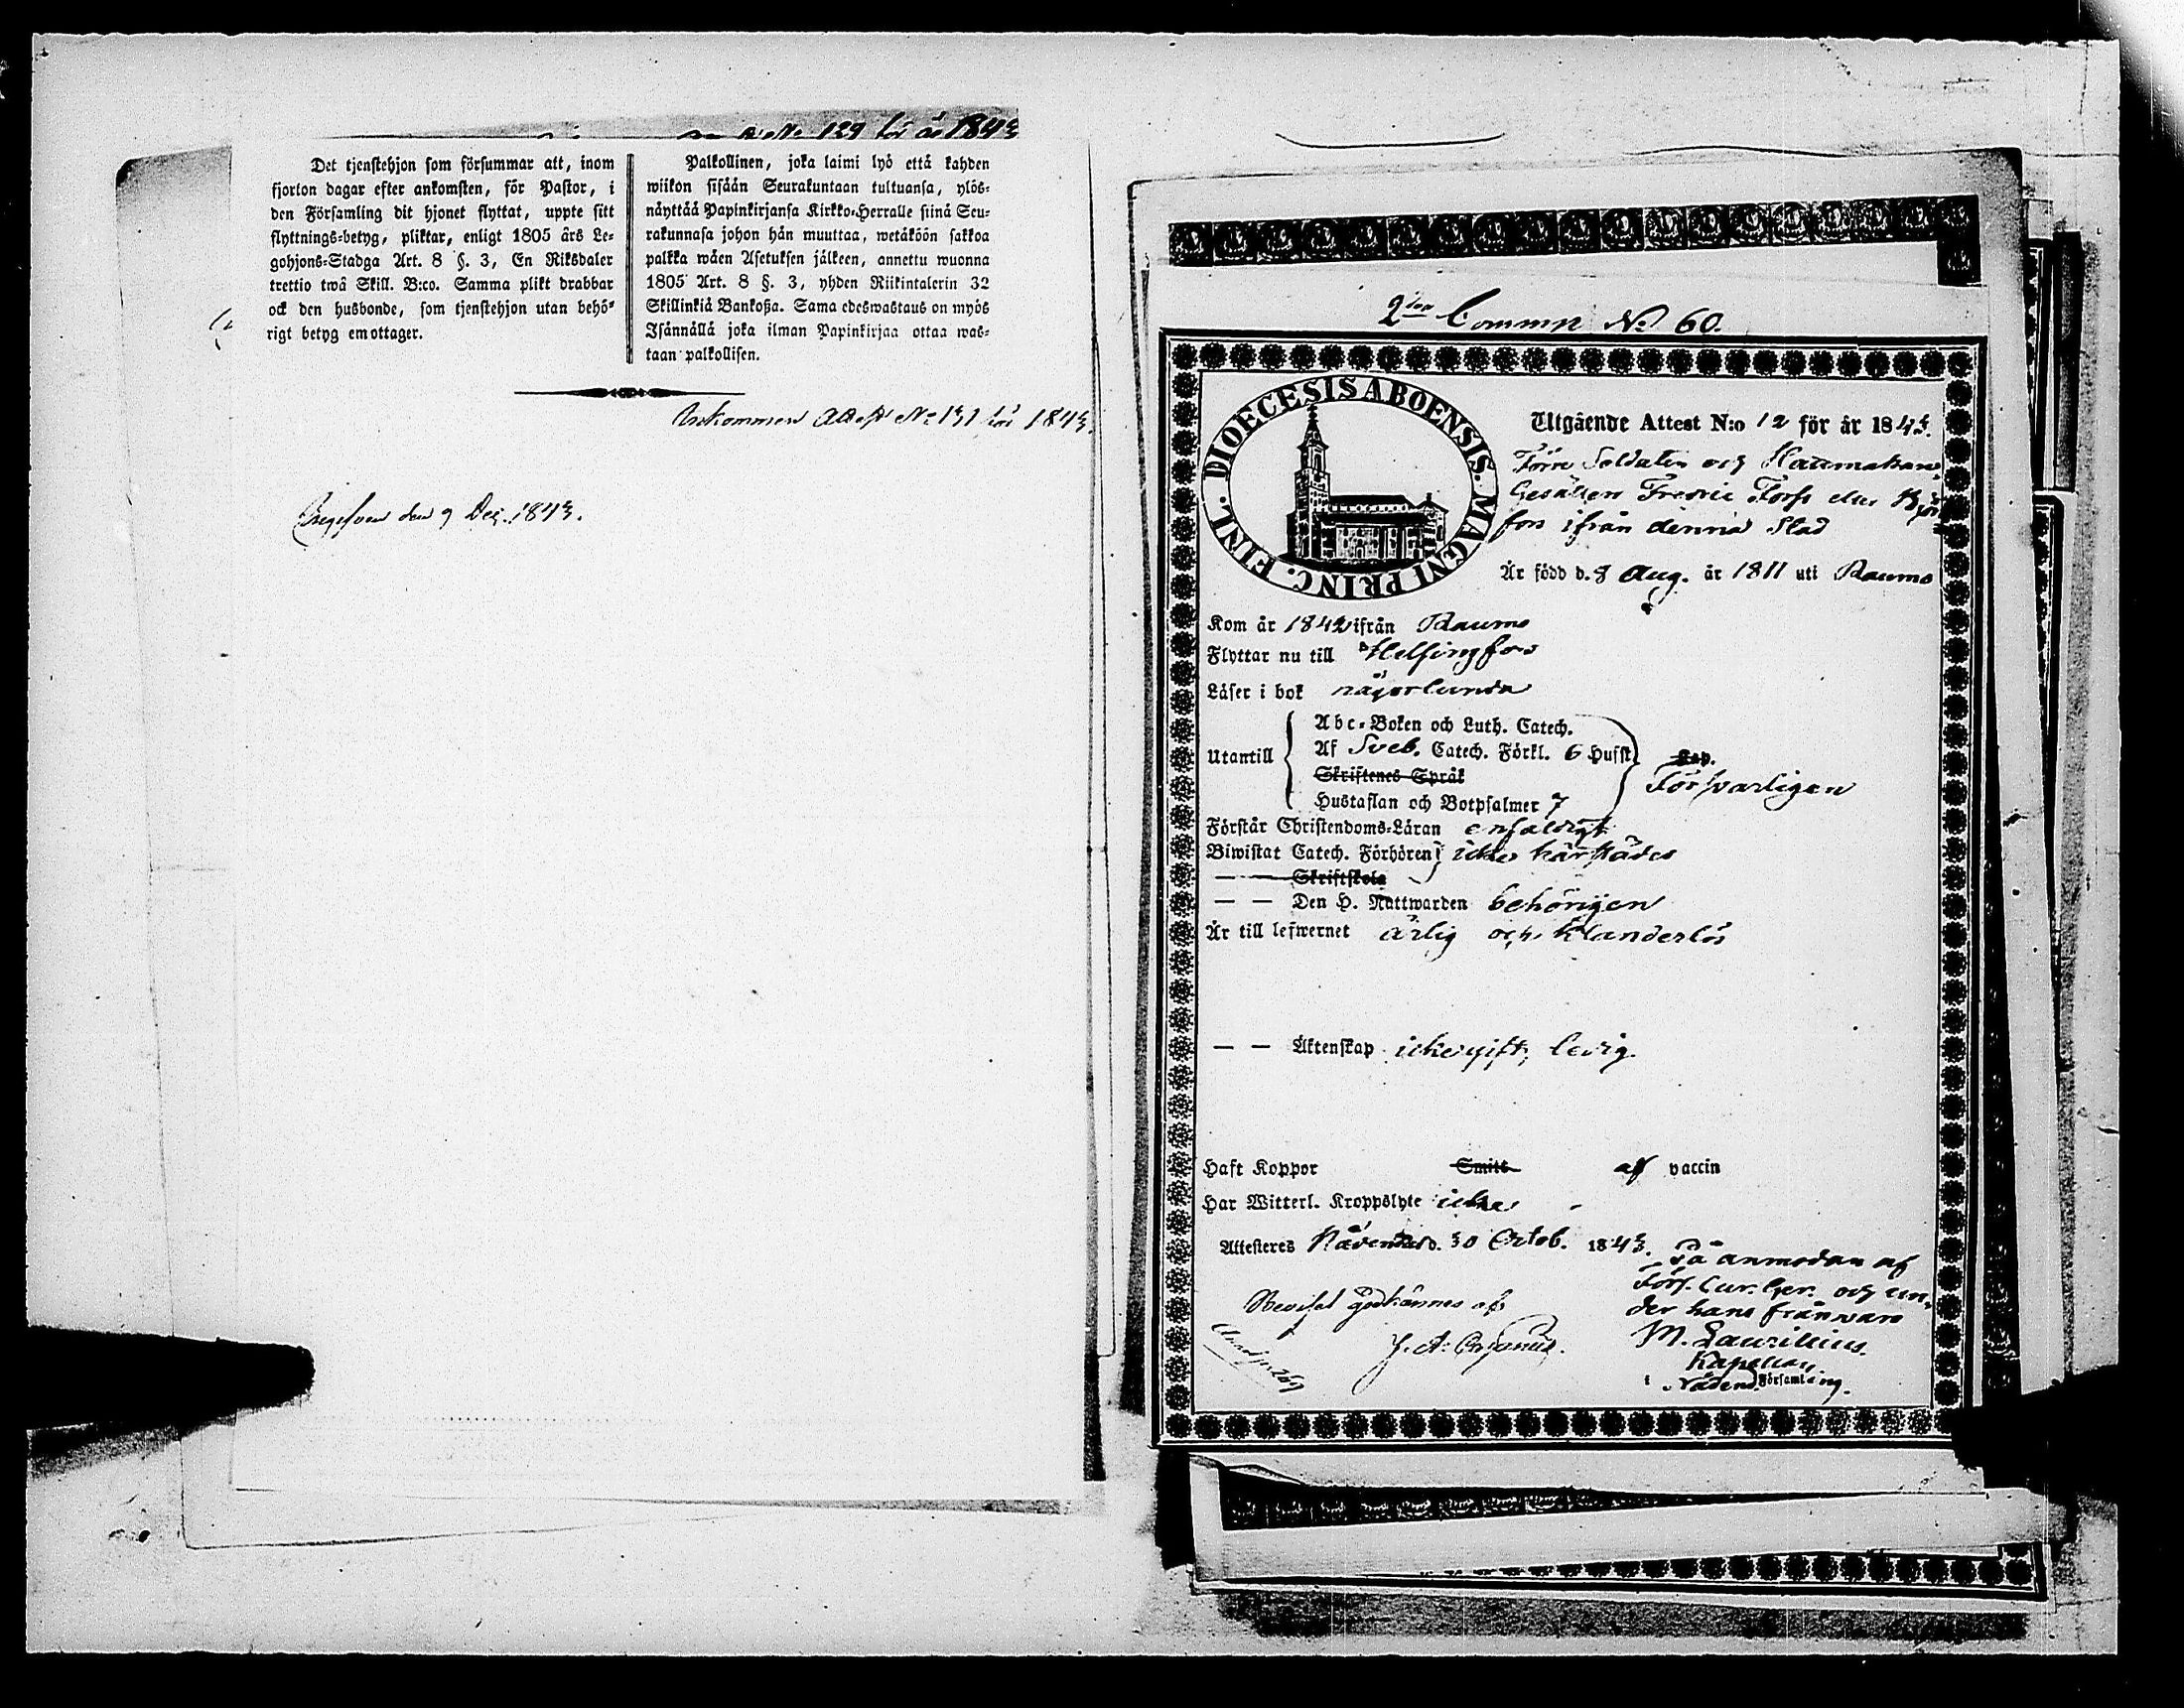 N:o 139 för år 1843
Det tjenstehjon som försummar att, inom
fjorton dagar efter ankomsten, för Pastor, i
den Församling dit hjonet flyttat, uppte sitt
flyttnings-betyg, pliktar, enligt 1805 års Le-
gohjons-Stadga Art. 8 §. 3, En Riksdaler
trettio twå Skill. B:co. Samma plikt drabbar
ock den husbonde, som tjenstehjon utan behö-
rigt betyg emottager.
Palkollinen, joka laimi lyö että kahden
wiikon sisään Seurakuntaan tultuansa, ylös-
näyttää Papinkirjansa Kirkko-Herralle siinä Seu-
rakunnasa johon hän muuttaa, wetäköön sakkoa
palkka wäen Asetuksen jälkeen, annettu wuonna
1805 Art. 8 §. 3, yhden Riikintalerin 32
Skillinkiä Bankosa. Sama edeswastaus on myös
Isännällä joka ilman Papinkirjaa ottaa was-
taan palkollisen.
Inkommen Attest No 131 för 1843.
den 9 Dec. 1843.
2dra Commn No 60.
DIOECESIS ABOENSIS. MAGNI PRINC. FINL.
Utgående Attest N:o 12 för år 1843.
Förre Soldaten och
Gesällen Fredric Forss eller Björ
fors ifrån denna Stad
Är född d. 8 Aug. år 1811 uti Raumo
Kom år 1842 ifrån Raumo
Flyttar nu till Helsingfors
Läser i bok någorlunda
Abc-Boken och Luth. Catech.
Utantill Af Sveb. Catech. Förkl. 6 Hufst. Kap.
Skriftenes Språk
Försvarligen
Hustaflan och Botpsalmer 7
Förstår Christendoms-Läran enfaldigt
Biwistat Catech. Förhören icke härstädes
— — Skriftskola
— — Den H. Nattwarden behörigen
Är till lefwernet ärlig och klanderlös
— — Äktenskap icke gift, ledig.
Haft Koppor Smitt af vaccin
Har Witterl. Kroppslyte icke
Attesteres Nådendal d. 30 Octob. 1843.
På anmodan af
Förs. Cur. Ger. och un-
der hans frånvaro
godkännes af
M. Laurellius.
J. A.
Kapellan
269
i Nådend. Församling.